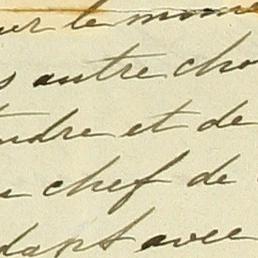 ur le mome
s autre cho
ndre et de
chef de
dant avec